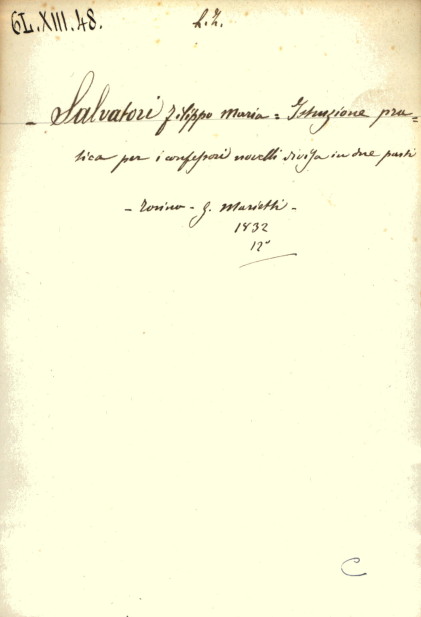 6L.XIII.48.
- Salvatori Filippo Maria = Istruzione pra=
tica per i confessori novelli divisa in due parti
- Torino - G. Marietti -
1832
12°
C